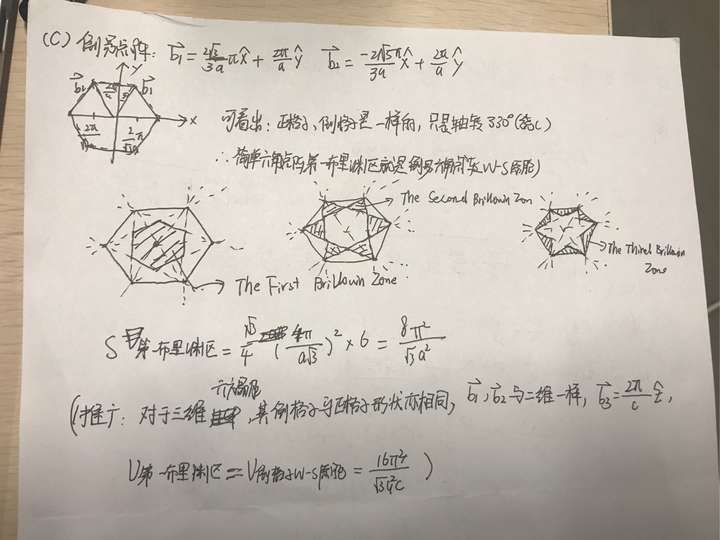 (C) 倒易点阵: b₁ = 2√3/3a πx̂ + 2π/a ŷ b₂ = -2√3π/3a x̂ + 2π/a ŷ
y
b₂ b₁
x
2π/√3a 2π/√3a
可看出: 正格子、倒格子是一样的, 只是轴转330°(绕c)
∴ 简单六角点阵第一布里渊区就是倒易六角点阵W-S原胞)
The Second Brillouin Zon
The Third Brillouin Zone
The First Brillouin Zone
S第一布里渊区 = √3/4 (4π/a√3)² × 6 = 8π²/√3a²
六角晶胞
(推广: 对于三维, 其倒格子与正格子形状亦相同, b₁, b₂与二维一样, b₃ = 2π/c ẑ,
V第一布里渊区 = V倒格子W-S原胞 = 16π³/√3a²c )